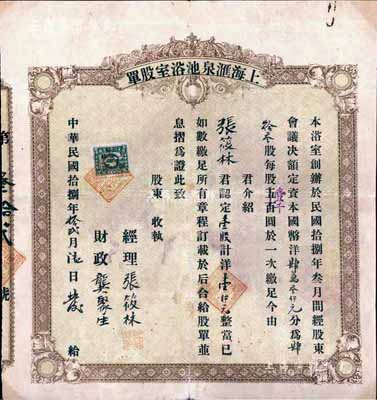 上海滙泉池浴室股單
本浴室創辦於民國拾捌年叁月間經股東
會議决額定資本國幣洋肆萬叁仟元分為肆
拾叁股每股五百圓於一次繳足今由
壹千
君介紹
張筱林 君認定壹股計洋壹仟元整當已
如數繳足所有章程訂載於后合給股單並
息摺為證此致
股東 收執
經理 張筱林
財政 龔聚生
中華民國拾捌年拾貳月 日 給
第
號